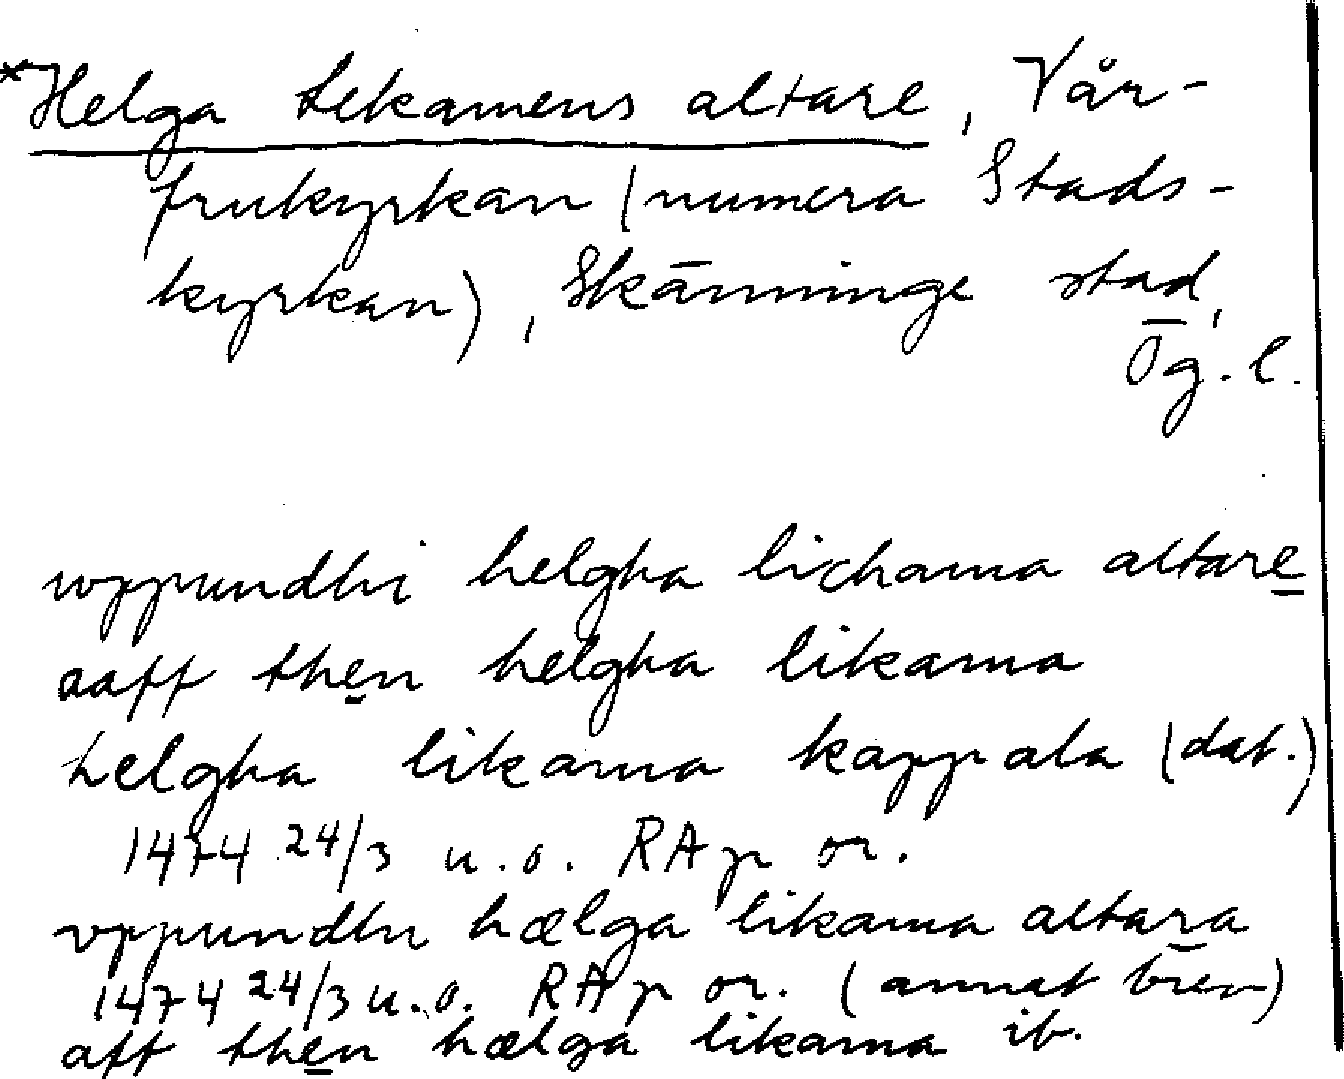 *Helga Lekamens altare, Vår-
frukyrkan (numera Stads-
kyrkan), Skänninge stad,
Ög. l.
wppundhi helgha lichama altare
aaff then helgha likama
helgha likama kappala (dat.)
1474 24/3 u.o. RAp or.
vppundhi hælga likama altara
1474 24/3 u.o. RAp or. (annat brev)
aff then hælga likama ib.